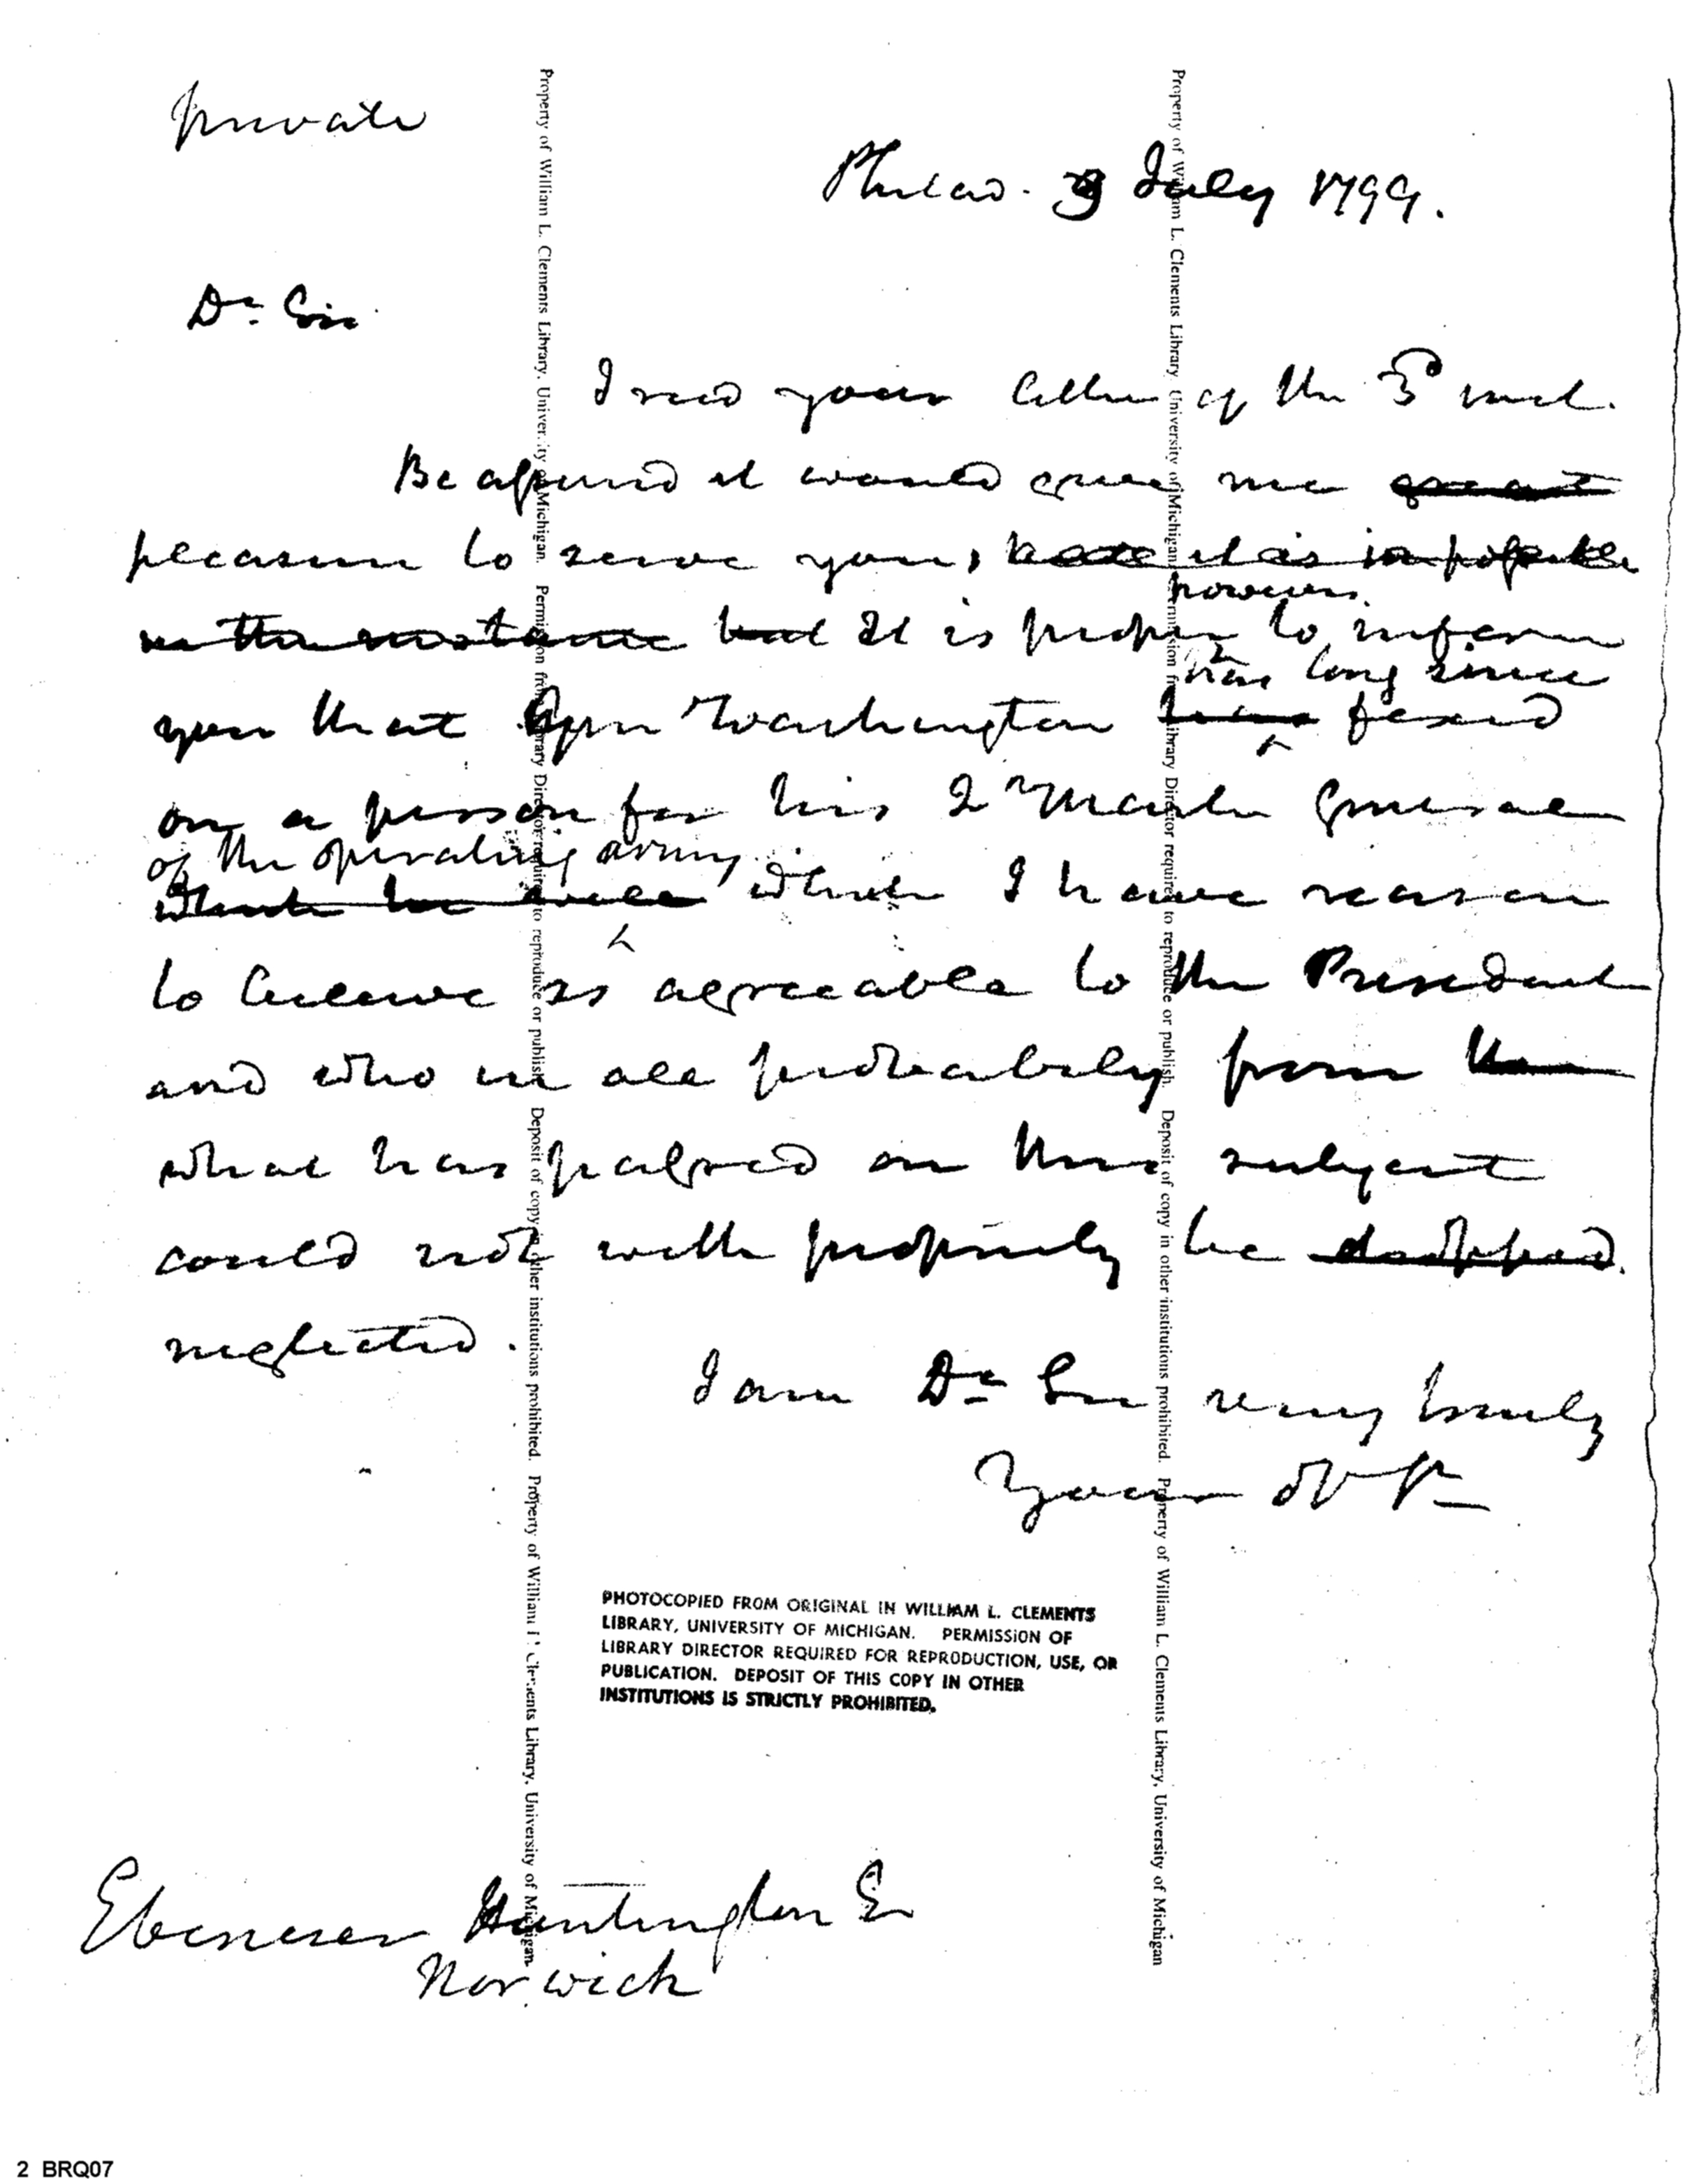 private
Philad. 9 July 1799.
Dr. Sir
I recd your letter of the 3d inst.
Be assured it would give me great
pleasure to serve you, but it is impossible
in this instance but It is proper to inform
however
you that Gen Washington has fixed
has long since
on a person for his Qr Master General
of the operating army
which he will which I have reason
to believe is agreeable to the President
and who in all probability from
what has passed on this subject
could not with propriety be dropped.
neglected.
I am Dr Sir very truly
Yours
PHOTOCOPIED FROM ORIGINAL IN WILLIAM L. CLEMENTS
LIBRARY, UNIVERSITY OF MICHIGAN. PERMISSION OF
LIBRARY DIRECTOR REQUIRED FOR REPRODUCTION, USE, OR
PUBLICATION. DEPOSIT OF THIS COPY IN OTHER
INSTITUTIONS IS STRICTLY PROHIBITED.
Ebenezer Huntington E
Norwich
Property of William L. Clements Library, University of Michigan. Permission from Library Director required to reproduce or publish. Deposit of copy in other institutions prohibited. Property of William L. Clements Library, University of Michigan
Property of William L. Clements Library, University of Michigan. Permission from Library Director required to reproduce or publish. Deposit of copy in other institutions prohibited. Property of William L. Clements Library, University of Michigan
2 BRQ07